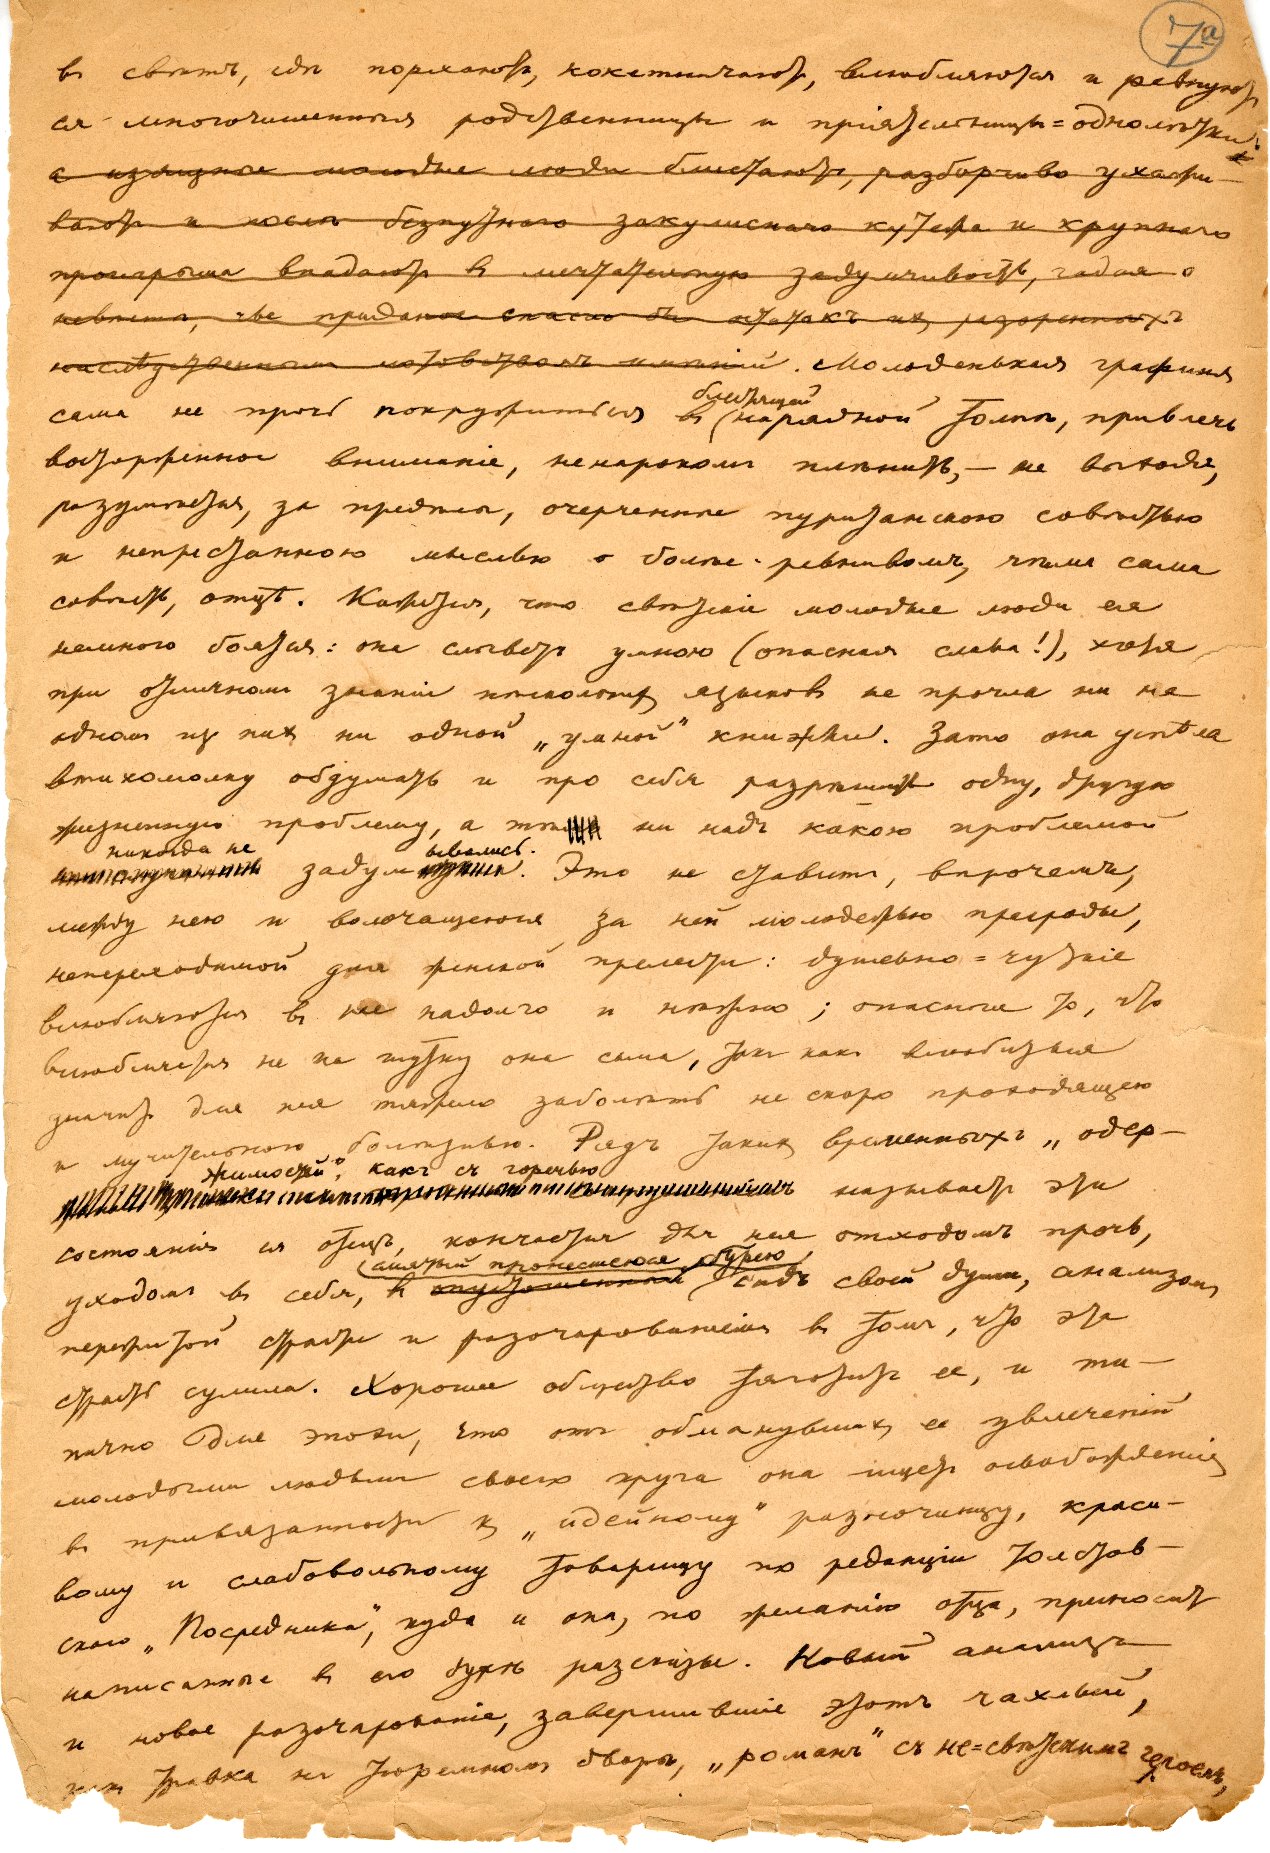 7а
въ свѣтъ, гдѣ порхаютъ, кокетничаютъ, влюбляются и ревнуютъ
ея многочисленныя родственницы и пріятельницы=однолѣтки
а изящные молодые люди блистаютъ, разборчиво ухажи-
ваютъ и послѣ безпутнаго закулиснаго кутежа и крупнаго
проигрыша впадаютъ въ мечтательную задумчивость, гадая о
невѣстѣ, чье приданое спасло бы остатокъ ихъ разоренныхъ
наслѣдственнымъ мотовствомъ имѣній. Молоденькая графиня
сама не прочь покружиться въ блестящей нарядной толпѣ, привлечь
восторженное вниманіе, ненарокомъ плѣнить, — не выходя,
разумѣется, за предѣлы, очерченные пуританскою совѣстью
и непрестанною мыслью о болѣе ревнивомъ, чѣмъ сама
совѣсть, отцѣ. Кажется, что свѣтскіе молодые люди ея
немного боятся: она слыветъ умною (опасная слава!), хотя
при отличномъ знаніи нѣсколькихъ языковъ не прочла ни на
одномъ изъ нихъ ни одной „умной" книжки. Зато она успѣла
втихомолку обдумать и про себя разрѣшить одну, другую
жизненную проблему, а тѣ ни надъ какою проблемой
никогда не задумывались. Это не ставитъ, впрочемъ,
между нею и волочащеюся за ней молодежью преграды,
непереходимой для женской прелести: душевно=чуткіе
влюбляются въ нее надолго и нѣжно; опаснѣе то, что
влюбляется не на шутку она сама, такъ какъ влюбиться
значитъ для нея тяжело заболѣть не скоро проходящею
и мучительною болѣзнью. Рядъ такихъ временныхъ „одер-
жимостей", какъ съ горечью называетъ эти
состоянія ея отецъ, кончается для нея отходомъ прочь,
уходомъ въ себя, въ опустошенный смятый пронесшеюся бурею садъ своей души, анализомъ
пережитой страсти и разочарованіемъ въ томъ, что эта
страсть сулила. Хорошее общество тяготитъ ее, и ти-
пично для эпохи, что отъ обманувшихъ ее увлеченій
молодыми людьми своего круга она ищетъ освобожденія
въ привязанности къ „идейному" разночинцу, краси-
вому и слабовольному товарищу по редакціи толстов-
скаго „Посредника", куда и она, по желанію отца, приноситъ
написанные въ его духѣ разсказы. Новый анализъ
и новое разочарованіе, завершившіе этотъ чахлый,
какъ травка на тюремномъ дворѣ, „романъ" съ не=свѣтскимъ героемъ,